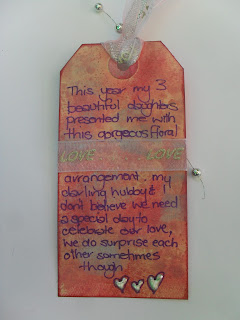 This year my 3
beautiful daughters,
presented me with
this gorgeous floral
LOVE LOVE
arrangement. my
darling hubby & I
don't believe we need
a special day to
celebrate our love,
we do surprise each
other sometimes
though